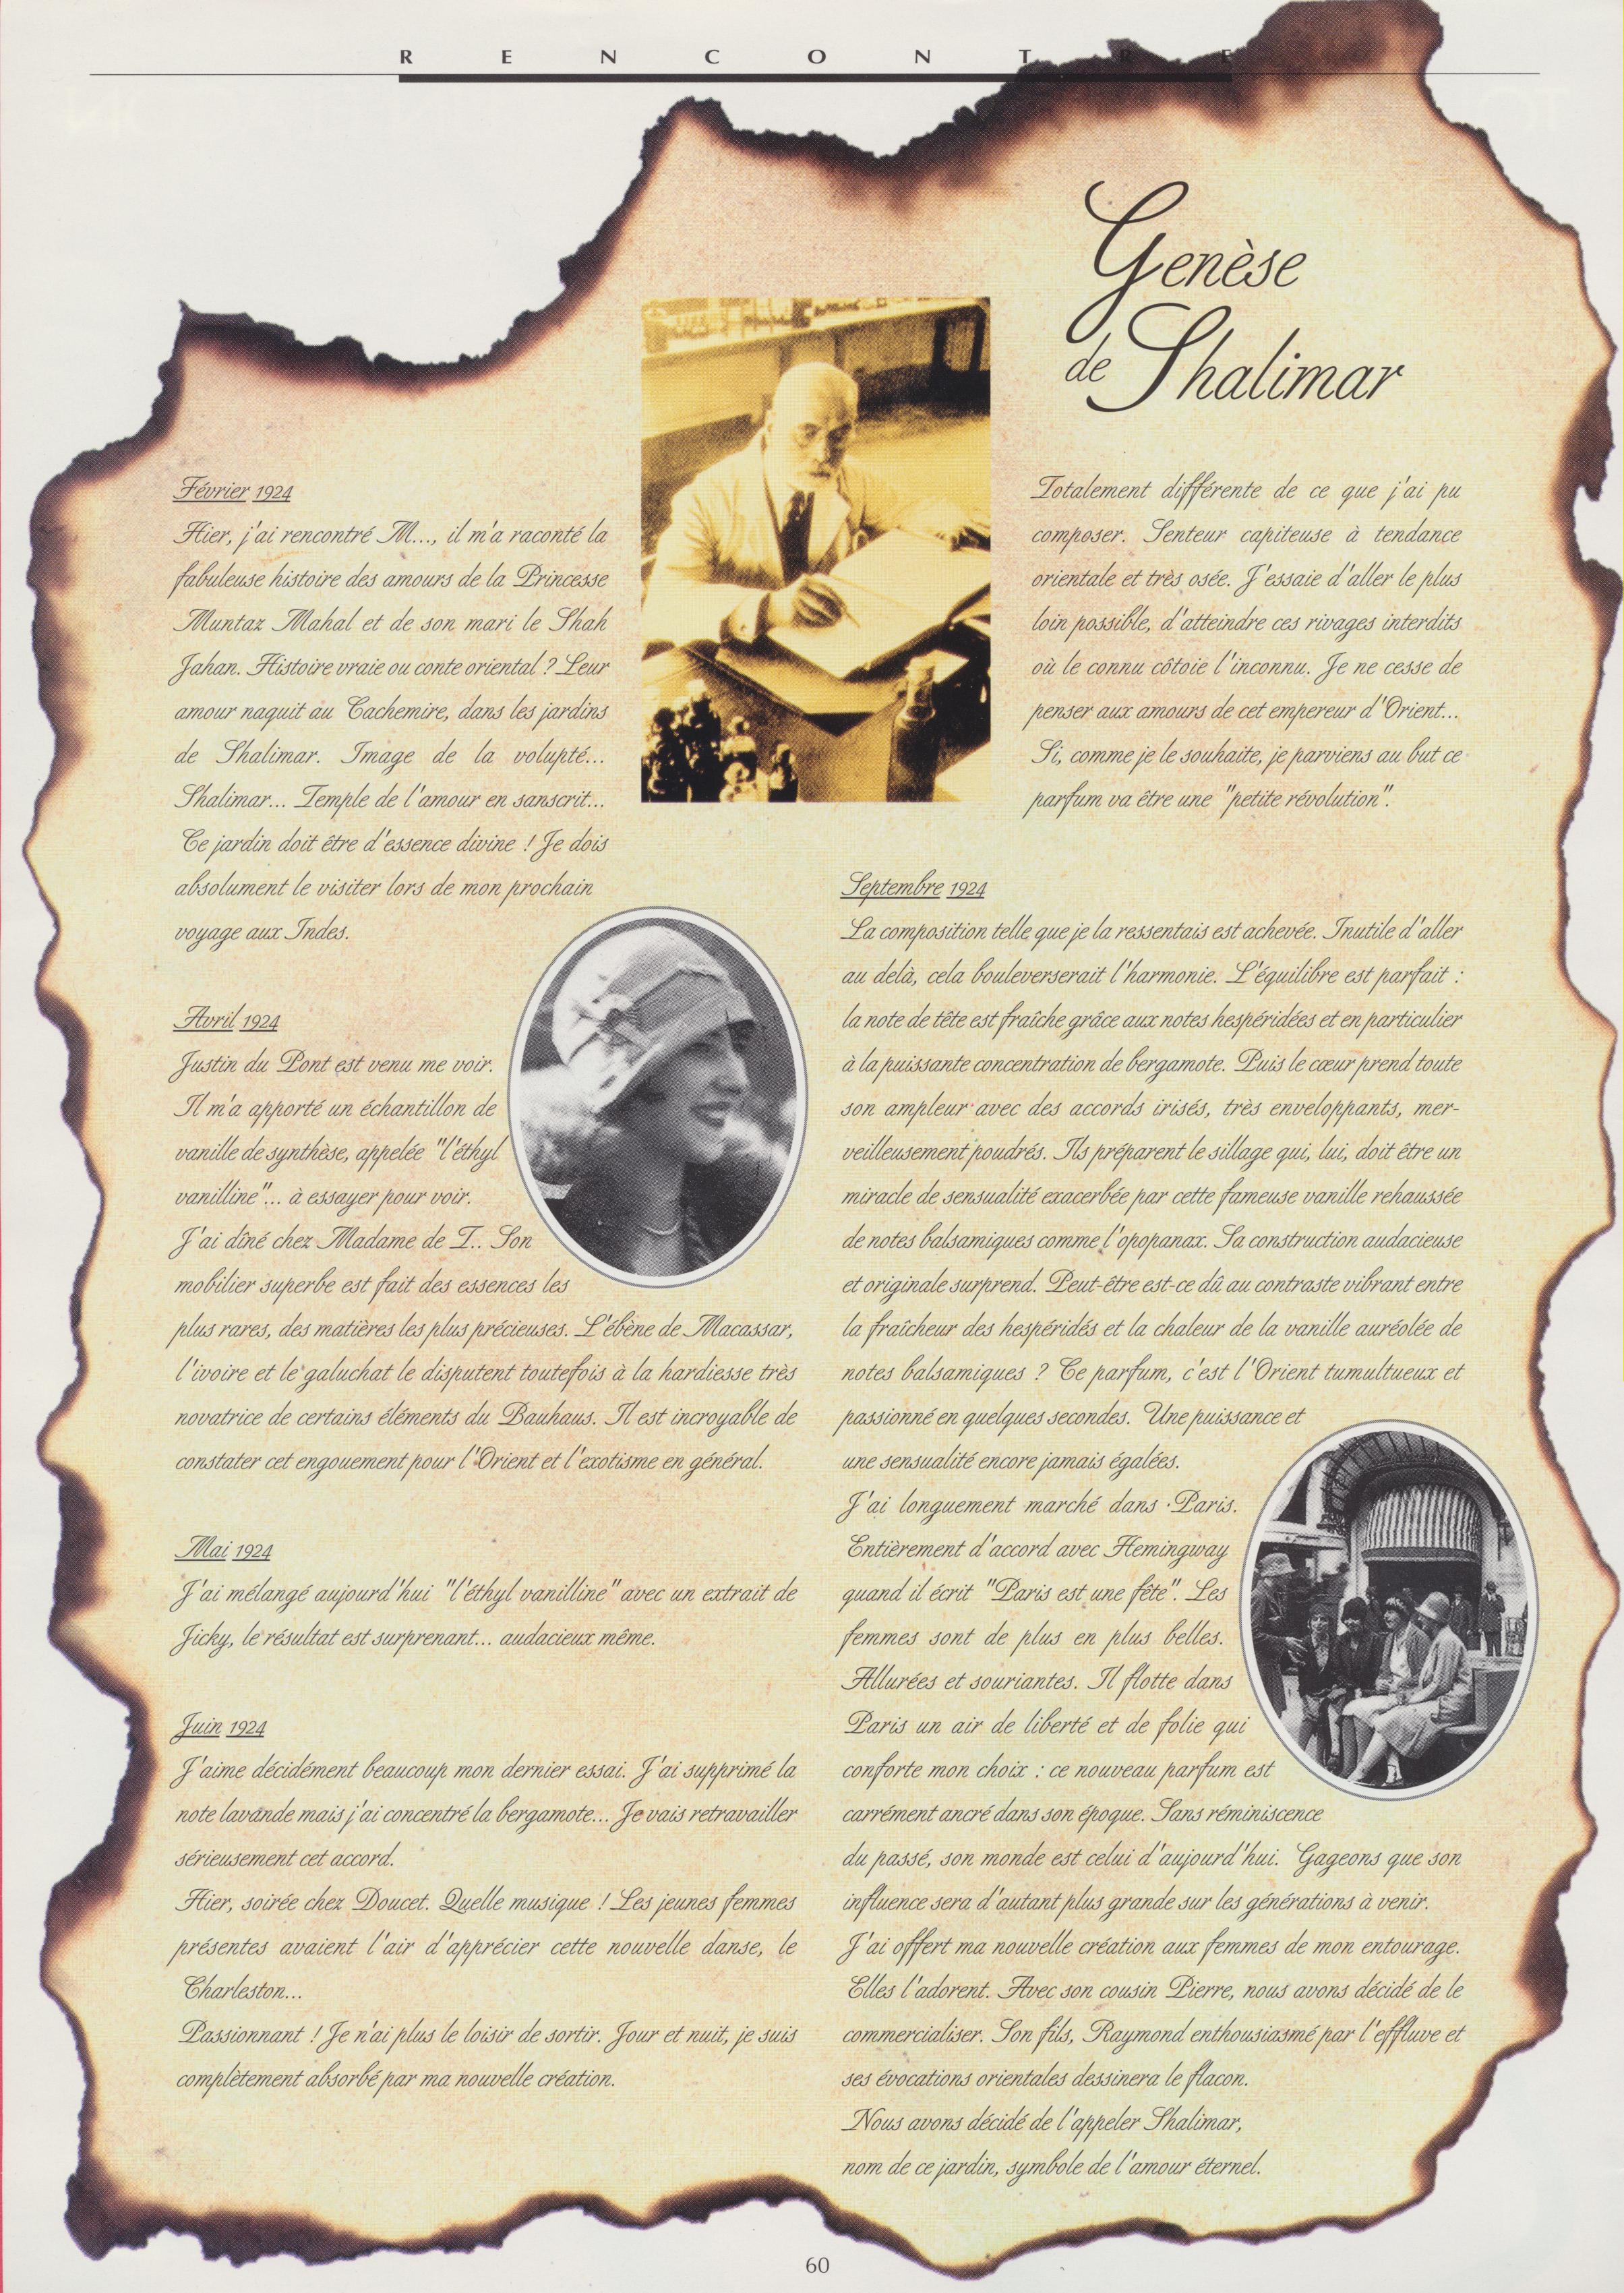 RENCONTRE
Genèse
de Shalimar
Février 1924
Hier, j'ai rencontré M..., il m'a raconté la
fabuleuse histoire des amours de la Princesse
Muntaz Mahal et de son mari le Shah
Jahan. Histoire vraie ou conte oriental ? Leur
amour naquit au Cachemire, dans les jardins
de Shalimar. Image de la volupté...
Shalimar... Temple de l'amour en sanscrit...
Ce jardin doit être d'essence divine ! Je dois
absolument le visiter lors de mon prochain
voyage aux Indes.
Avril 1924
Justin du Pont est venu me voir.
Il m'a apporté un échantillon de
vanille de synthèse, appelée "l'éthyl
vanilline"... à essayer pour voir.
J'ai dîné chez Madame de T.. Son
mobilier superbe est fait des essences les
plus rares, des matières les plus précieuses. L'ébène de Macassar,
l'ivoire et le galuchat le disputent toutefois à la hardiesse très
novatrice de certains éléments du Bauhaus. Il est incroyable de
constater cet engouement pour l'Orient et l'exotisme en général.
Mai 1924
J'ai mélangé aujourd'hui "l'éthyl vanilline" avec un extrait de
Jicky, le résultat est surprenant... audacieux même.
Juin 1924
J'aime décidément beaucoup mon dernier essai. J'ai supprimé la
note lavande mais j'ai concentré la bergamote... Je vais retravailler
sérieusement cet accord.
Hier, soirée chez Doucet. Quelle musique ! Les jeunes femmes
présentes avaient l'air d'apprécier cette nouvelle danse, le
Charleston...
Passionnant ! Je n'ai plus le loisir de sortir. Jour et nuit, je suis
complètement absorbé par ma nouvelle création.
Totalement différente de ce que j'ai pu
composer. Senteur capiteuse à tendance
orientale et très osée. J'essaie d'aller le plus
loin possible, d'atteindre ces rivages interdits
où le connu côtoie l'inconnu. Je ne cesse de
penser aux amours de cet empereur d'Orient...
Si, comme je le souhaite, je parviens au but ce
parfum va être une "petite révolution".
Septembre 1924
La composition telle que je la ressentais est achevée. Inutile d'aller
au delà, cela bouleverserait l'harmonie. L'équilibre est parfait :
la note de tête est fraîche grâce aux notes hespéridées et en particulier
à la puissante concentration de bergamote. Puis le cœur prend toute
son ampleur avec des accords irisés, très enveloppants, mer-
veilleusement poudrés. Ils préparent le sillage qui, lui, doit être un
miracle de sensualité exacerbée par cette fameuse vanille rehaussée
de notes balsamiques comme l'opopanax. Sa construction audacieuse
et originale surprend. Peut-être est-ce dû au contraste vibrant entre
la fraîcheur des hespéridés et la chaleur de la vanille auréolée de
notes balsamiques ? Ce parfum, c'est l'Orient tumultueux et
passionné en quelques secondes. Une puissance et
une sensualité encore jamais égalées.
J'ai longuement marché dans Paris.
Entièrement d'accord avec Hemingway
quand il écrit "Paris est une fête". Les
femmes sont de plus en plus belles.
Allurées et souriantes. Il flotte dans
Paris un air de liberté et de folie qui
conforte mon choix : ce nouveau parfum est
carrément ancré dans son époque. Sans réminiscence
du passé, son monde est celui d'aujourd'hui. Gageons que son
influence sera d'autant plus grande sur les générations à venir.
J'ai offert ma nouvelle création aux femmes de mon entourage.
Elles l'adorent. Avec son cousin Pierre, nous avons décidé de le
commercialiser. Son fils, Raymond enthousiasmé par l'effluve et
ses évocations orientales dessinera le flacon.
Nous avons décidé de l'appeler Shalimar,
nom de ce jardin, symbole de l'amour éternel.
60